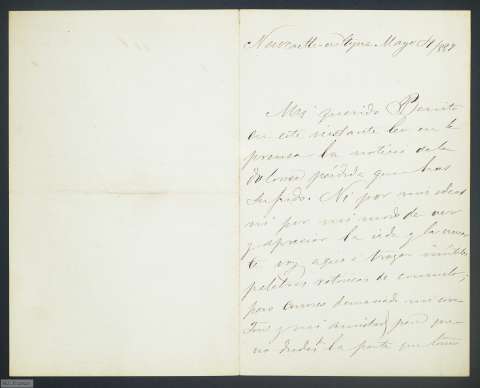 Newcastle-on-Tyne Mayo 4/887
Mi querido Benito
En este instante leo en la
prensa la noticia de la
dolorosa pérdida que has
sufrido. Ni por mis ideas
ni por mi modo de ver
y apreciar la vida y la muer
te voy aqui a trazar inútiles
palabras retoricas de consuelo;
pero conoces demasiado mi cora
zon y mi amistad para que
no dudes la parte que tomo